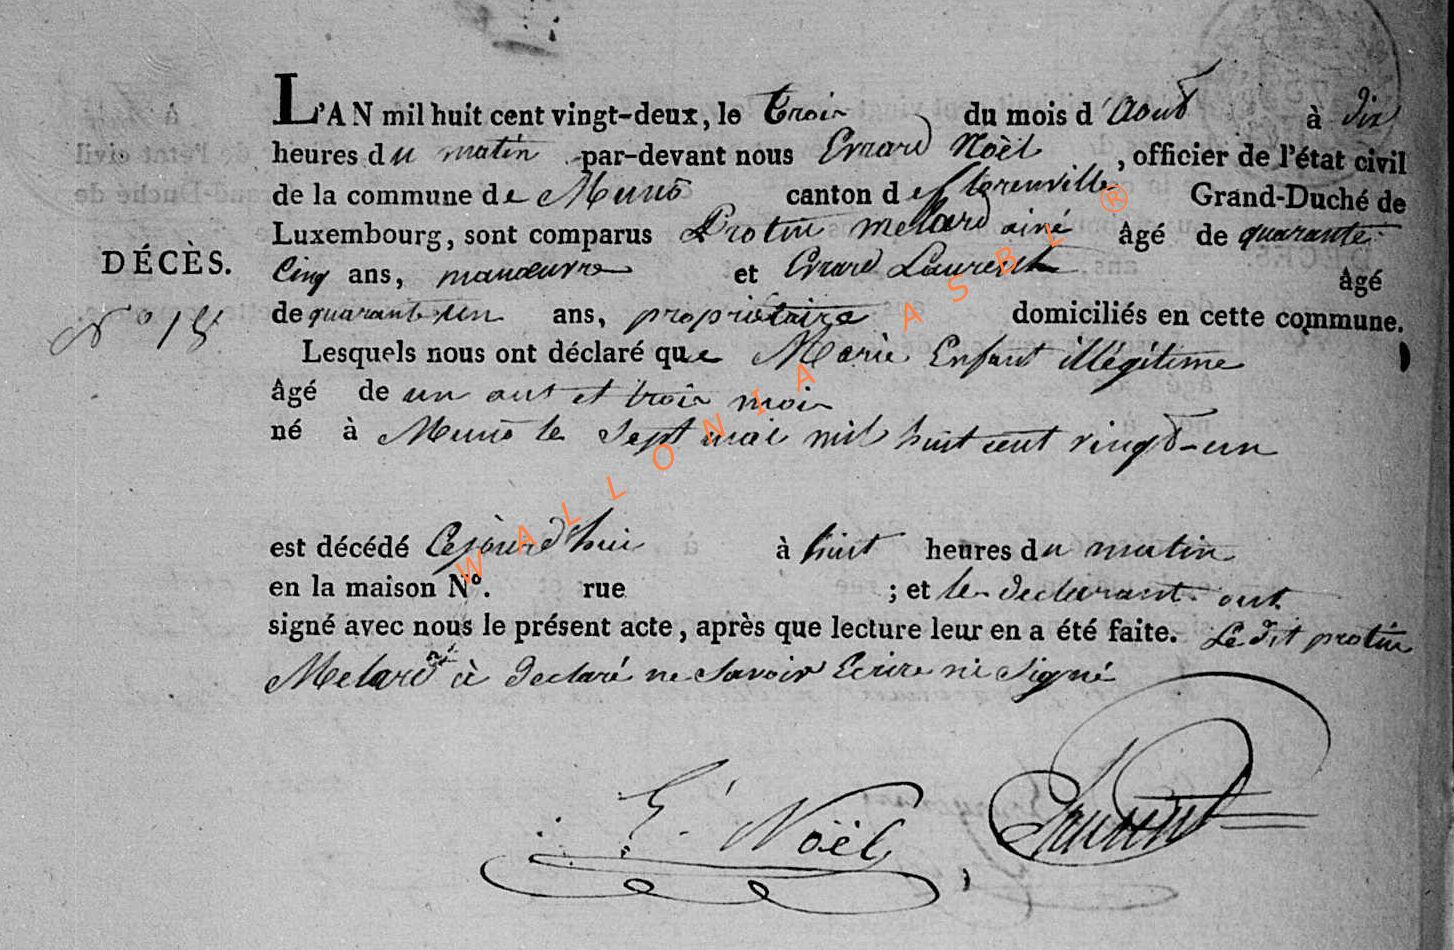 L'AN mil huit cent vingt-deux, le trois du mois d'Aout à dix
heures du matin par-devant nous Evrard Noël, officier de l'état civil
de la commune de Muno canton de florenville Grand-Duché de
Luxembourg, sont comparus Protin melard ainé âgé de quarante
DÉCÈS.
Cinq ans, manœuvre et Evrard Laurent âgé
de quarante un ans, propriétaire domiciliés en cette commune.
N° 15
Lesquels nous ont déclaré que Marie Enfant illégitime
âgé de un ans et trois mois
né à Muno le sept mai mil huit cent vingt-un
est décédé Cejourd'hui à huit heures du matin
en la maison N°. rue ; et les declarant ont
signé avec nous le présent acte, après que lecture leur en a été faite. Le dit protin
Melard à declaré ne savoir Ecrire ni signé
E. Noël
Laurent
WALLONIA ASBL ®